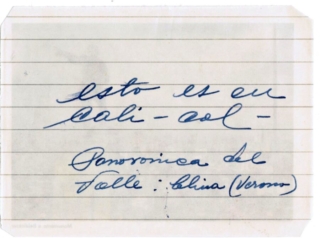 esto es en
Cali - Col -
Panoromica del
Valle : Clima (Verano)